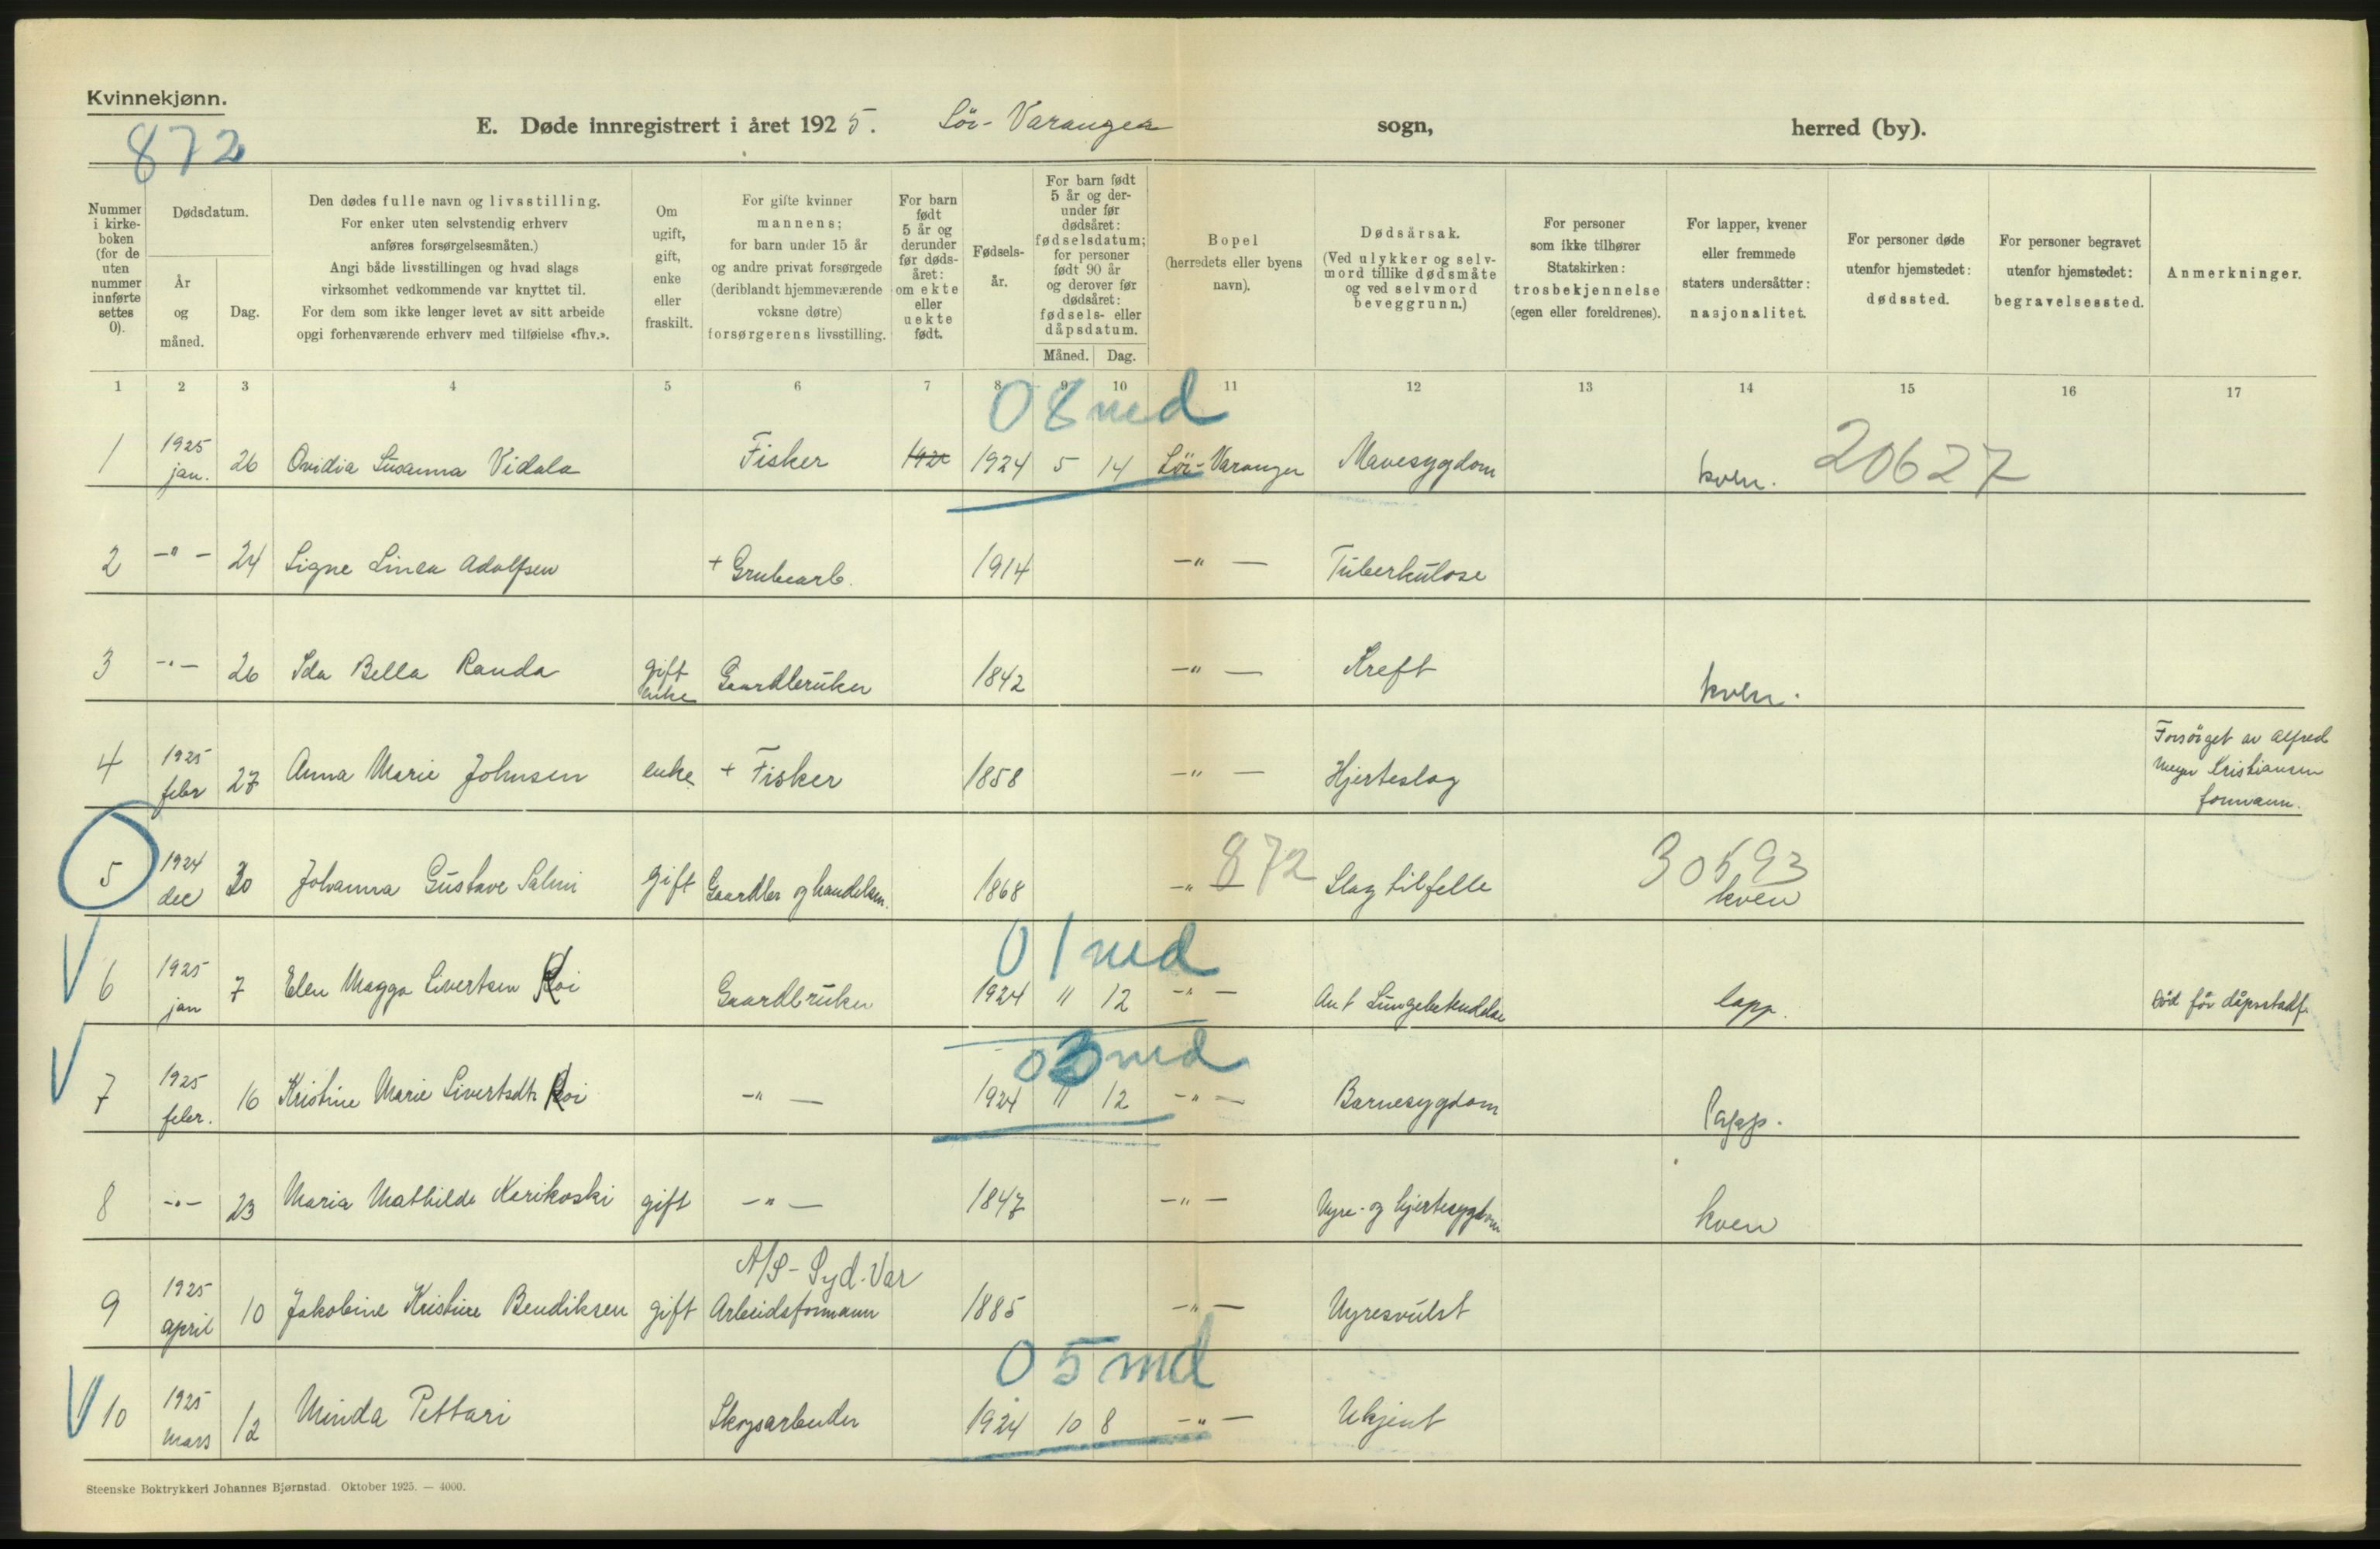 Kvinnekjønn.
872
E. Døde innregistrert i året 1925. Sör-Varanger sogn, herred (by).
Nummer i kirkeboken (for de uten nummer innførte settes 0).
Dødsdatum.
År og måned.
Dag.
Den dødes fulle navn og livsstilling.
For enker uten selvstendig erhverv
anføres forsørgelsesmåten.)
Angi både livsstillingen og hvad slags
virksomhet vedkommende var knyttet til.
For dem som ikke lenger levet av sitt arbeide
opgi forhenværende erhverv med tilføielse «fhv.».
Om ugift, gift, enke eller fraskilt.
For gifte kvinner
mannens;
for barn under 15 år
og andre privat forsørgede
(deriblandt hjemmeværende
voksne døtre)
forsørgerens livsstilling.
For barn født 5 år og derunder før dødsåret: om ekte eller uekte født.
Fødselsår.
For barn født 5 år og derunder før dødsåret: fødselsdatum; for personer født 90 år og derover før dødsåret: fødsels- eller dåpsdatum.
Måned. Dag.
Bopel
(herredets eller byens
navn).
Dødsårsak.
(Ved ulykker og selvmord tillike dødsmåte og ved selvmord beveggrunn.)
For personer
som ikke tilhører
Statskirken:
trosbekjennelse
(egen eller foreldrenes).
For lapper, kvener
eller fremmede
staters undersåtter:
nasjonalitet.
For personer døde
utenfor hjemstedet:
dødssted.
For personer begravet
utenfor hjemstedet:
begravelsessted.
Anmerkninger.
1 2 3 4 5 6 7 8 9 10 11 12 13 14 15 16 17
08 md
1 1925 jan. 26 Ovidia Susanna Vidala Fisker 1924 5 14 Sör-Varanger Mavesygdom kven. 20627
2 -"- 24 Signe Linea Adolfsen + Grubearb. 1914 -"- Tuberkulose
3 -"- 26 Ida Bella Randa gift enke Gaardbruker 1842 -"- Kreft kven.
4 1925 febr 27 Anna Marie Johnsen enke + Fisker 1858 -"- Hjerteslag Forsörget av Alfred
Meyer Kristiansen
formann.
5 1924 dec 30 Johanna Gustave Salmi gift Gaardbr og handelsm. 1868 -"- 872 Slagtilfelle 30593 kven
01 md
6 1925 jan 7 Elen Magga Sivertsen Roi Gaardbruker 1924 11 12 -"- Ant Lungebetendelse lapp. död för dåpsstadf.
03 md
7 1925 febr. 16 Kristine Marie Sivertsdtr Roi -"- 1924 11 12 -"- Barnesygdom lapp.
8 -"- 23 Maria Mathilde Karikoski gift -"- 1847 -"- Nyre- og hjertesygdom kven
A/S-Syd.Var
9 1925 april 10 Jakobine Kristine Bendiksen gift Arbeidsformann 1885 -"- Nyresvulst
05 md
10 1925 mars 12 Minda Pettari Skogsarbeider 1924 10 8 -"- Ukjent
Steenske Boktrykkeri Johannes Bjørnstad. Oktober 1925. — 4000.